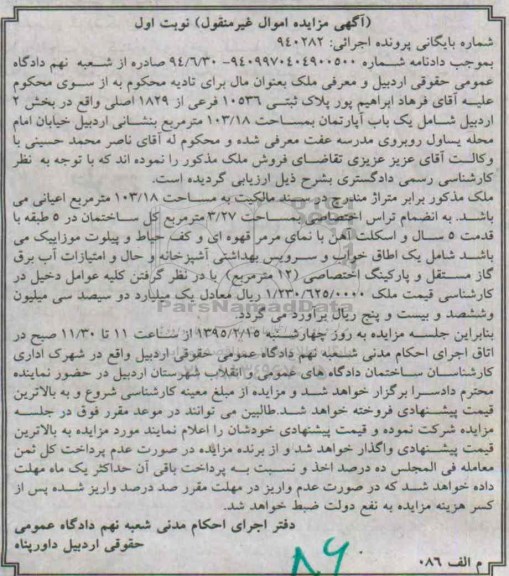 (آگهی مزایده اموال غیرمنقول) نوبت اول
شماره بایگانی پرونده اجرائی: ۹۴۰۲۸۲
بموجب دادنامه شماره ۹۴۰۹۹۷۰۴۰۴۹۰۰۵۰۰- ۹۴/۶/۳۰ صادره از شعبه نهم دادگاه
عمومی حقوقی اردبیل و معرفی ملک بعنوان مال برای تادیه محکوم به از سوی محکوم
علیه آقای فرهاد ابراهیم پور پلاک ثبتی ۱۰۵۳۶ فرعی از ۱۸۲۹ اصلی واقع در بخش ۲
اردبیل شامل یک باب آپارتمان بمساحت ۱۰۳/۱۸ مترمربع بنشانی اردبیل خیابان امام
محله یساول روبروی مدرسه عفت معرفی شده و محکوم له آقای ناصر محمد حسینی با
وکالت آقای عزیز عزیزی تقاضای فروش ملک مذکور را نموده اند که با توجه به نظر
کارشناسی رسمی دادگستری بشرح ذیل ارزیابی گردیده است.
ملک مذکور برابر متراژ مندرج در سند مالکیت به مساحت ۱۰۳/۱۸ مترمربع اعیانی می
باشد. به انضمام تراس اختصاصی بمساحت ۳/۲۷ مترمربع کل ساختمان در ۵ طبقه با
قدمت ۵ سال و اسکلت آهن با نمای مرمر قهوه ای و کف حیاط و پیلوت موزاییک می
باشد شامل یک اطاق خواب و سرویس بهداشتی آشپزخانه و حال و امتیازات آب برق
گاز مستقل و پارکینگ اختصاصی (۱۲ مترمربع) با در نظر گرفتن کلیه عوامل دخیل در
کارشناسی قیمت ملک ۱/۲۳۰/۶۲۵/۰۰۰۰ ریال معادل یک میلیارد دو سیصد سی میلیون
وششصد و بیست و پنج ریال برآورد می گردد.
بنابراین جلسه مزایده به روز چهارشنبه ۱۳۹۵/۲/۱۵ از ساعت ۱۱ تا ۱۱/۳۰ صبح در
اتاق اجرای احکام مدنی شعبه نهم دادگاه عمومی حقوقی اردبیل واقع در شهرک اداری
کارشناسان ساختمان دادگاه های عمومی و انقلاب شهرستان اردبیل در حضور نماینده
محترم دادسرا برگزار خواهد شد و مزایده از مبلغ معینه کارشناسی شروع و به بالاترین
قیمت پیشنهادی فروخته خواهد شد.طالبین می توانند در موعد مقرر فوق در جلسه
مزایده شرکت نموده و قیمت پیشنهادی خودشان را اعلام نمایند مورد مزایده به بالاترین
قیمت پیشنهادی واگذار خواهد شد و از برنده مزایده در صورت عدم پرداخت کل ثمن
معامله فی المجلس ده درصد اخذ و نسبت به پرداخت باقی آن حداکثر یک ماه مهلت
داده خواهد شد که در صورت عدم واریز در مهلت مقرر صد درصد واریز شده پس از
کسر هزینه مزایده به نفع دولت ضبط خواهد شد.
دفتر اجرای احکام مدنی شعبه نهم دادگاه عمومی
حقوقی اردبیل داورپناه
م الف ۰۸۶
ParsNamadData